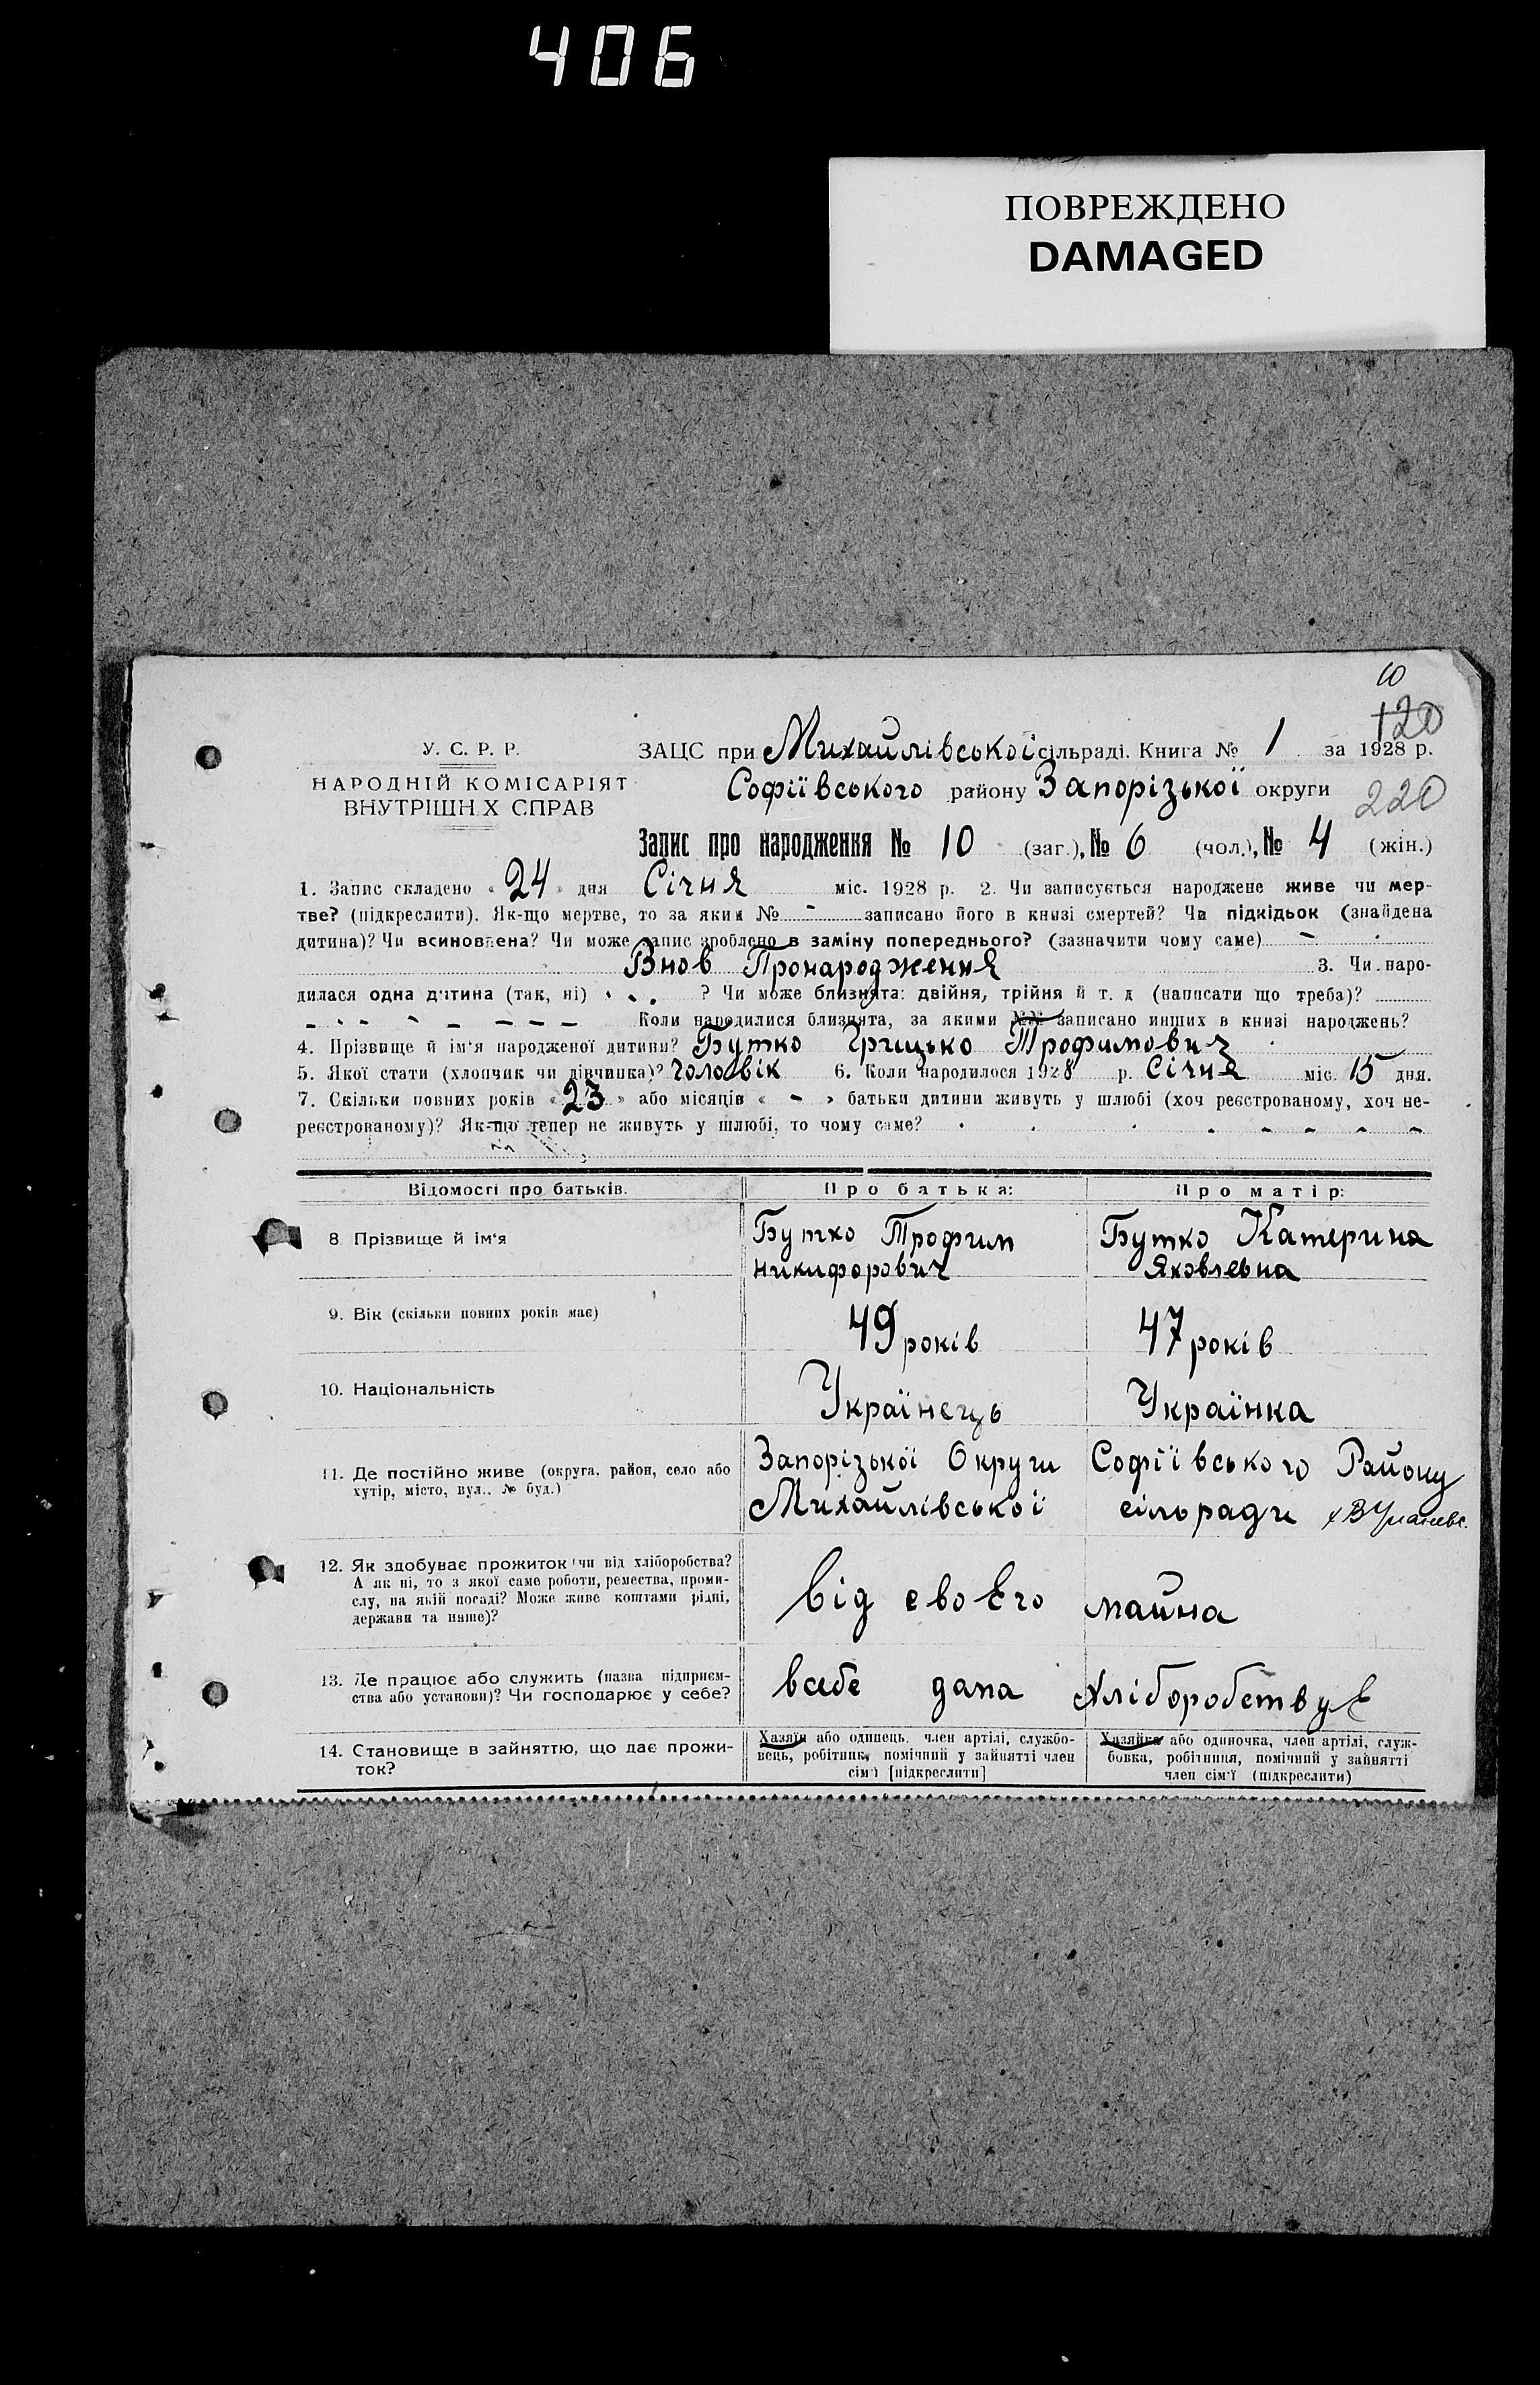 406
ПОВРЕЖДЕНО
DAMAGED
10
120
У. С. Р. Р.
НАРОДНІЙ КОМІСАРІЯТ
ВНУТРІШН Х СПРАВ
ЗАЦС при Михайлівської сільраді. Книга № 1 за 1928 р.
Софіївського району Запорізької округи
220
Запис про народження № 10 (заг.), № 6 (чол.), № 4 (жін.)
1. Запис складено « 24 » дня Січня міс. 1928 р. 2. Чи записується народжене живе чи мер-
тве? (підкреслити). Як-що мертве, то за яким № - записано його в книзі смертей? Чи підкідьок (знайдена
дитина)? Чи всиновлена? Чи може запис зроблено в заміну попереднього? (зазначити чому саме) -
Внов Пронародження 3. Чи наро-
дилася одна дитина (так, ні) ? Чи може близнята: двійня, трійня й т. д (написати що треба)?
- - - - - - - Коли народилися близнята, за якими №№ записано инших в книзі народжень?
4. Прізвище й ім'я народженої дитини? Бутко Грицько Трофимович
5. Якої стати (хлопчик чи дівчинка)? Чоловік 6. Коли народилося 1928 р. Січня міс. 15 дня.
7. Скільки повних років « 23 » або місяців « - » батьки дитини живуть у шлюбі (хоч реєстрованому, хоч не-
реєстрованому)? Як-що тепер не живуть у шлюбі, то чому саме? - - - - -
Відомості про батьків. Про батька: Про матір:
8. Прізвище й ім'я Бутко Трофим Бутко Катерина
Никифорович Яковлевна
9. Вік (скільки повних років має) 49 років 47 років
10. Національність Українець Українка
11. Де постійно живе (округа, район, село або Запорізької Округи Софіївського Району
хутір, місто, вул., № буд.) Михайлівської сілоради
12. Як здобуває прожиток (чи від хліборобства?
А як ні, то з якої саме роботи, ремества, проми-
слу, на якій посаді? Може живе коштами рідні,
держави та инше)? Від свобго майна
13. Де працює або служить (назва підприєм-
ства або установи)? Чи господарює у себе? всебе дама хлібороб ствує
14. Становище в зайняттю, що дає прожи-
ток?
Хазяїн або одинець, член артілі, службо-
вець, робітник, помічний у зайнятті член
сім'ї [підкреслити]
Хазяйка або одиночка, член артілі, служ-
бовка, робітниця, помічний у зайнятті
член сім'ї (підкреслити)